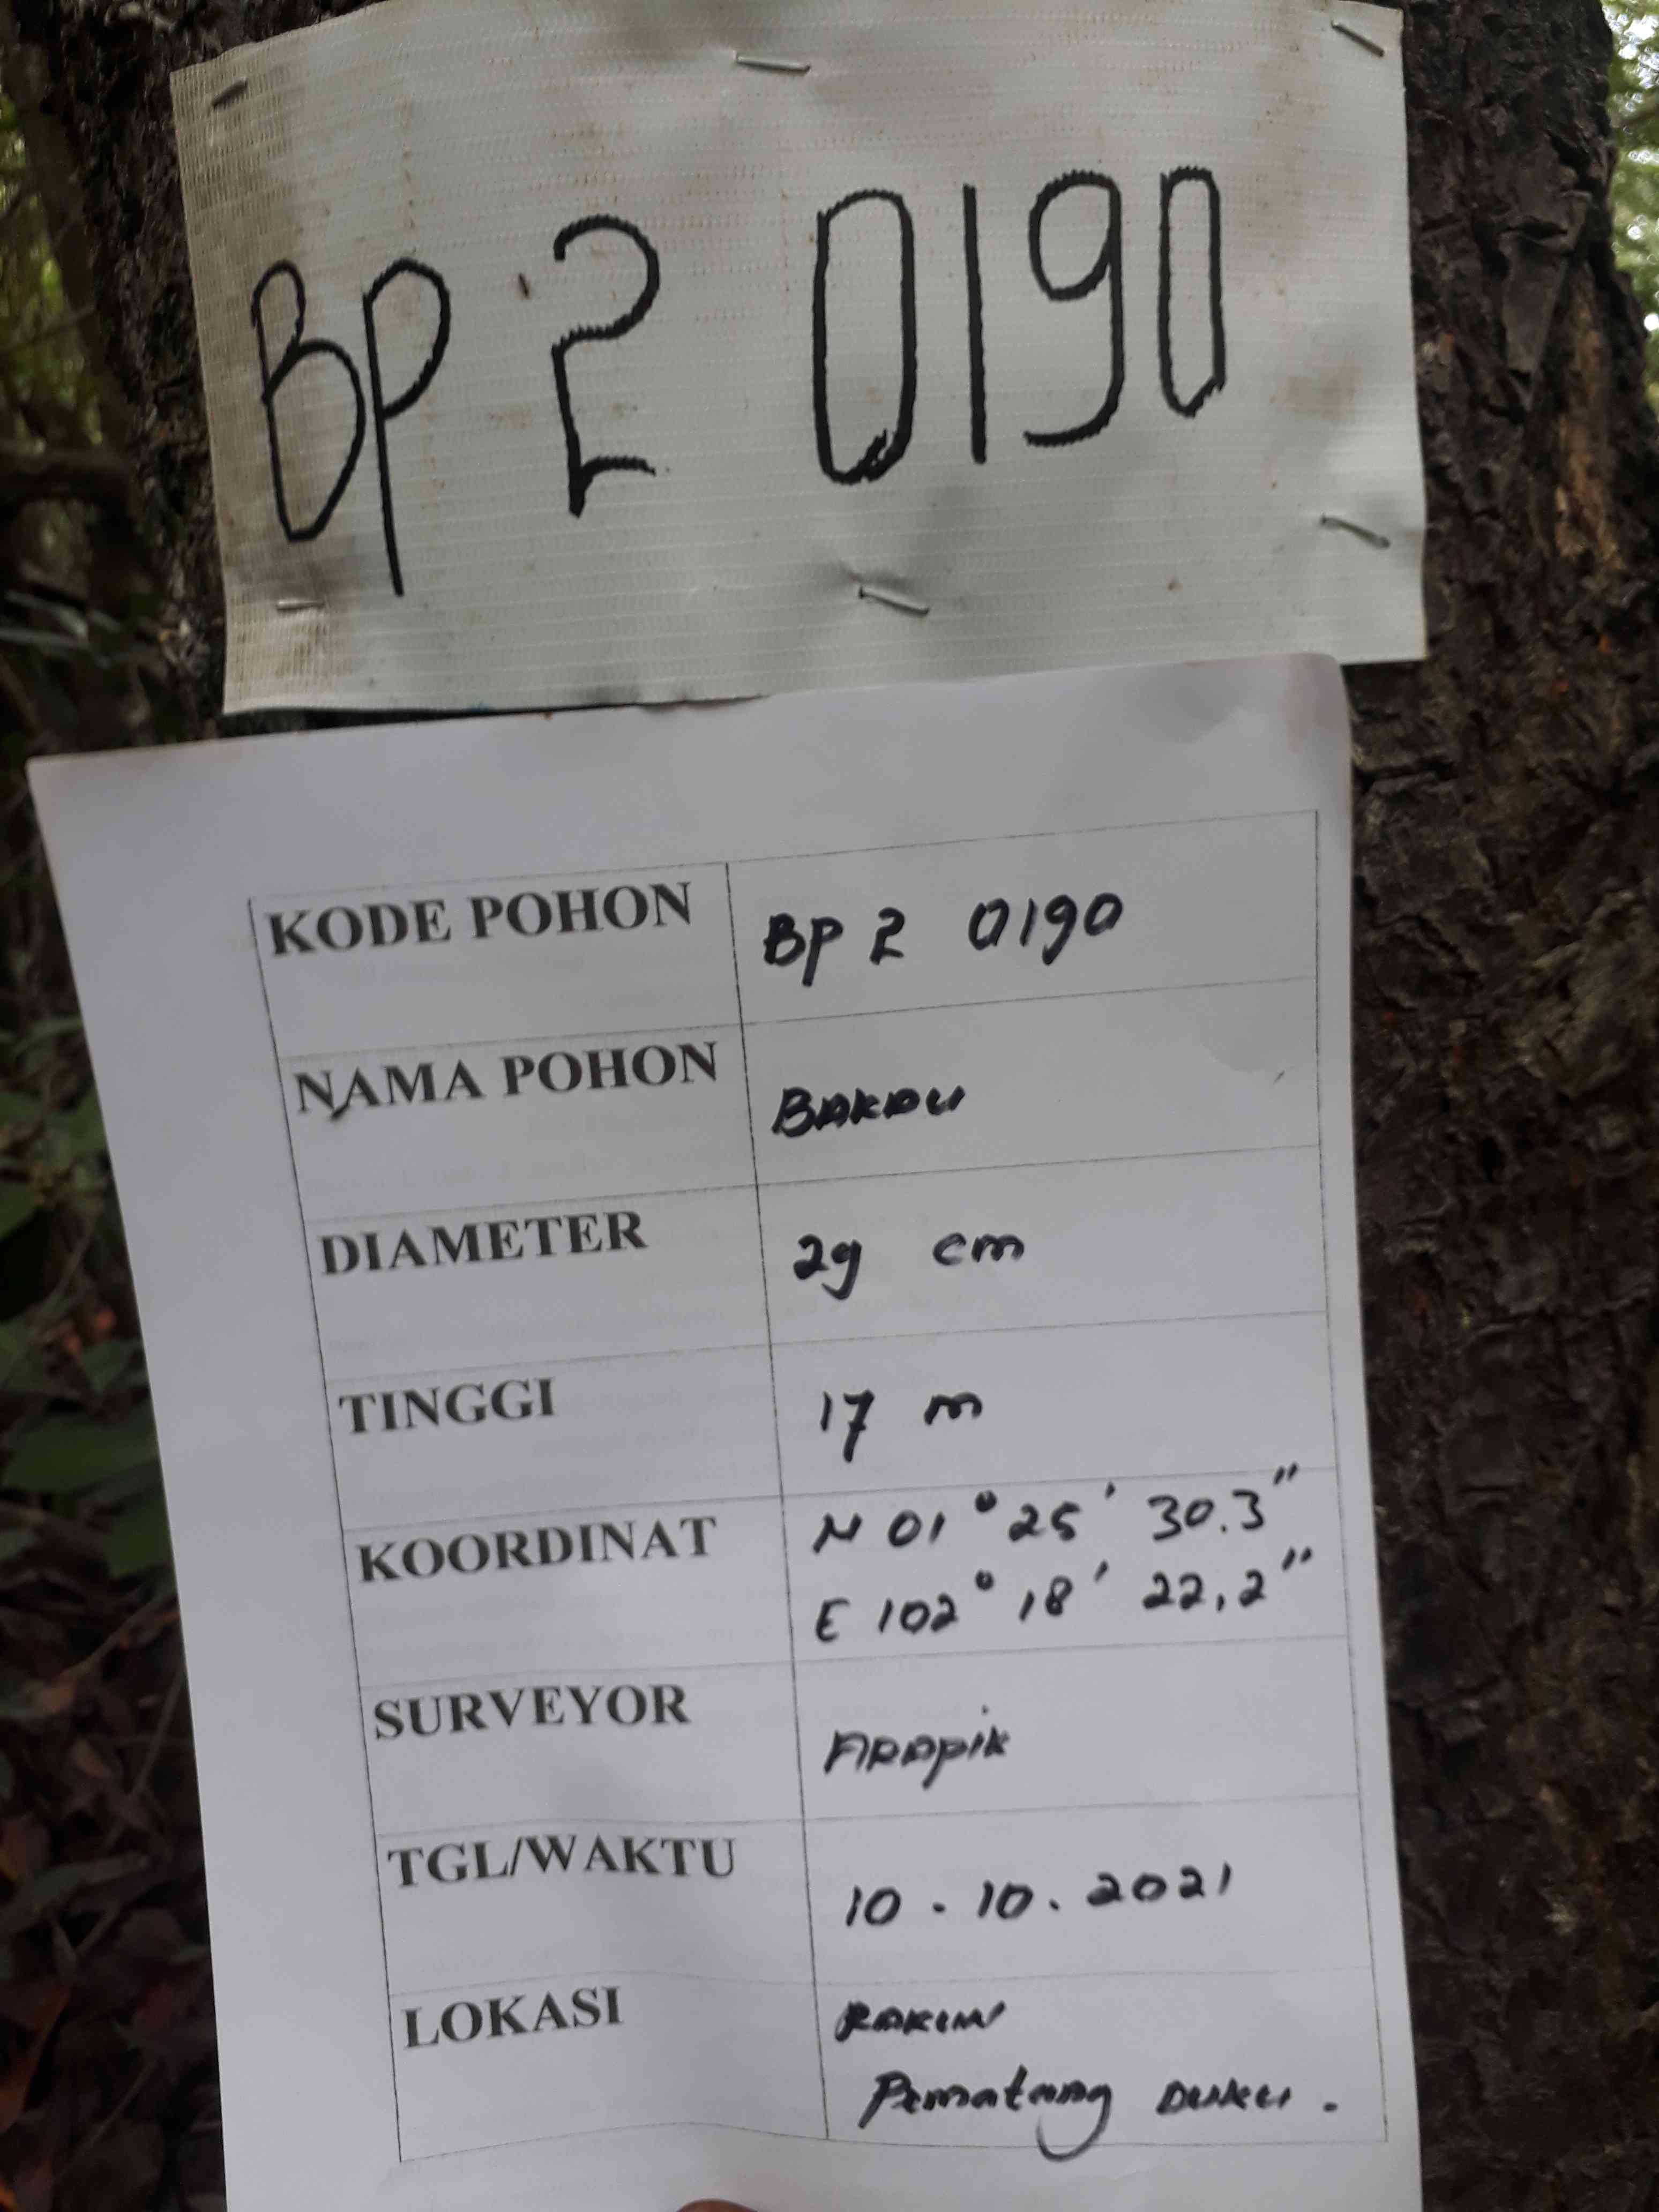 BP 2 0190
KODE POHON BP 2 0190
NAMA POHON BAKAU
DIAMETER 29 cm
TINGGI 17 m
KOORDINAT N 01° 25' 30.3"
E 102° 18' 22,2"
SURVEYOR
TGL/WAKTU 10 . 10 . 2021
LOKASI
Pematang DUKU .